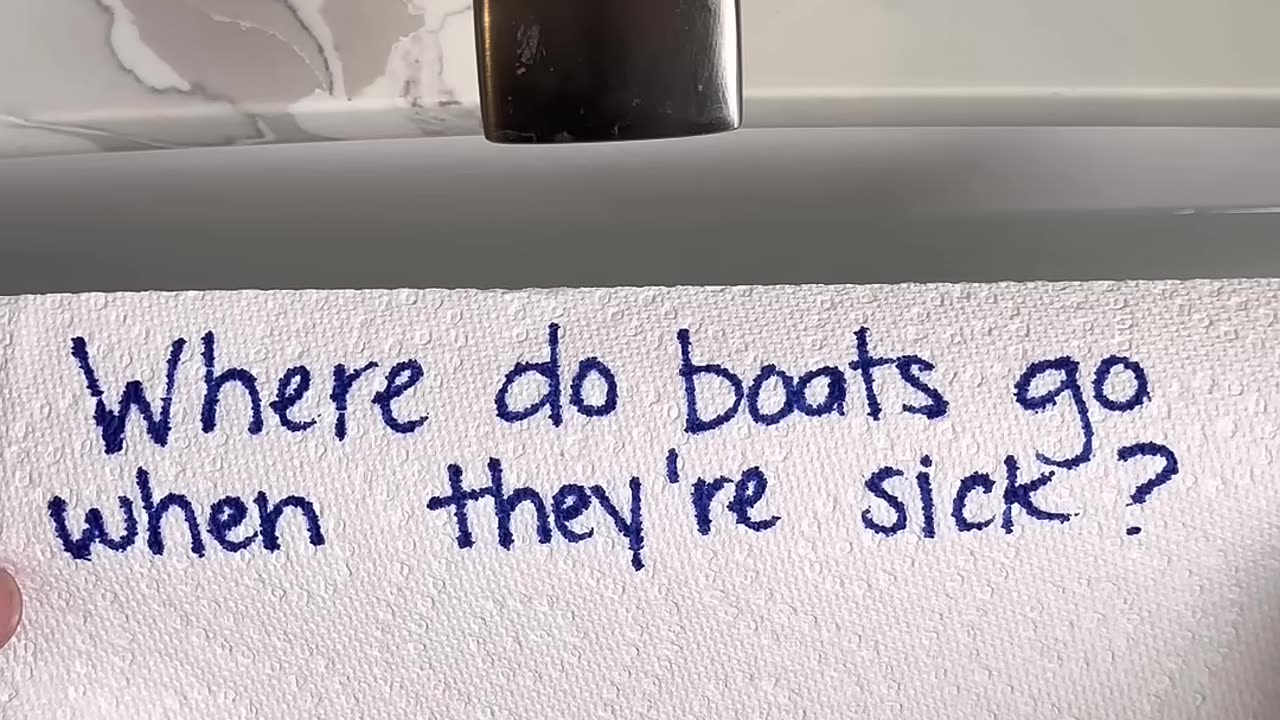 Where do boats go
when they're sick?